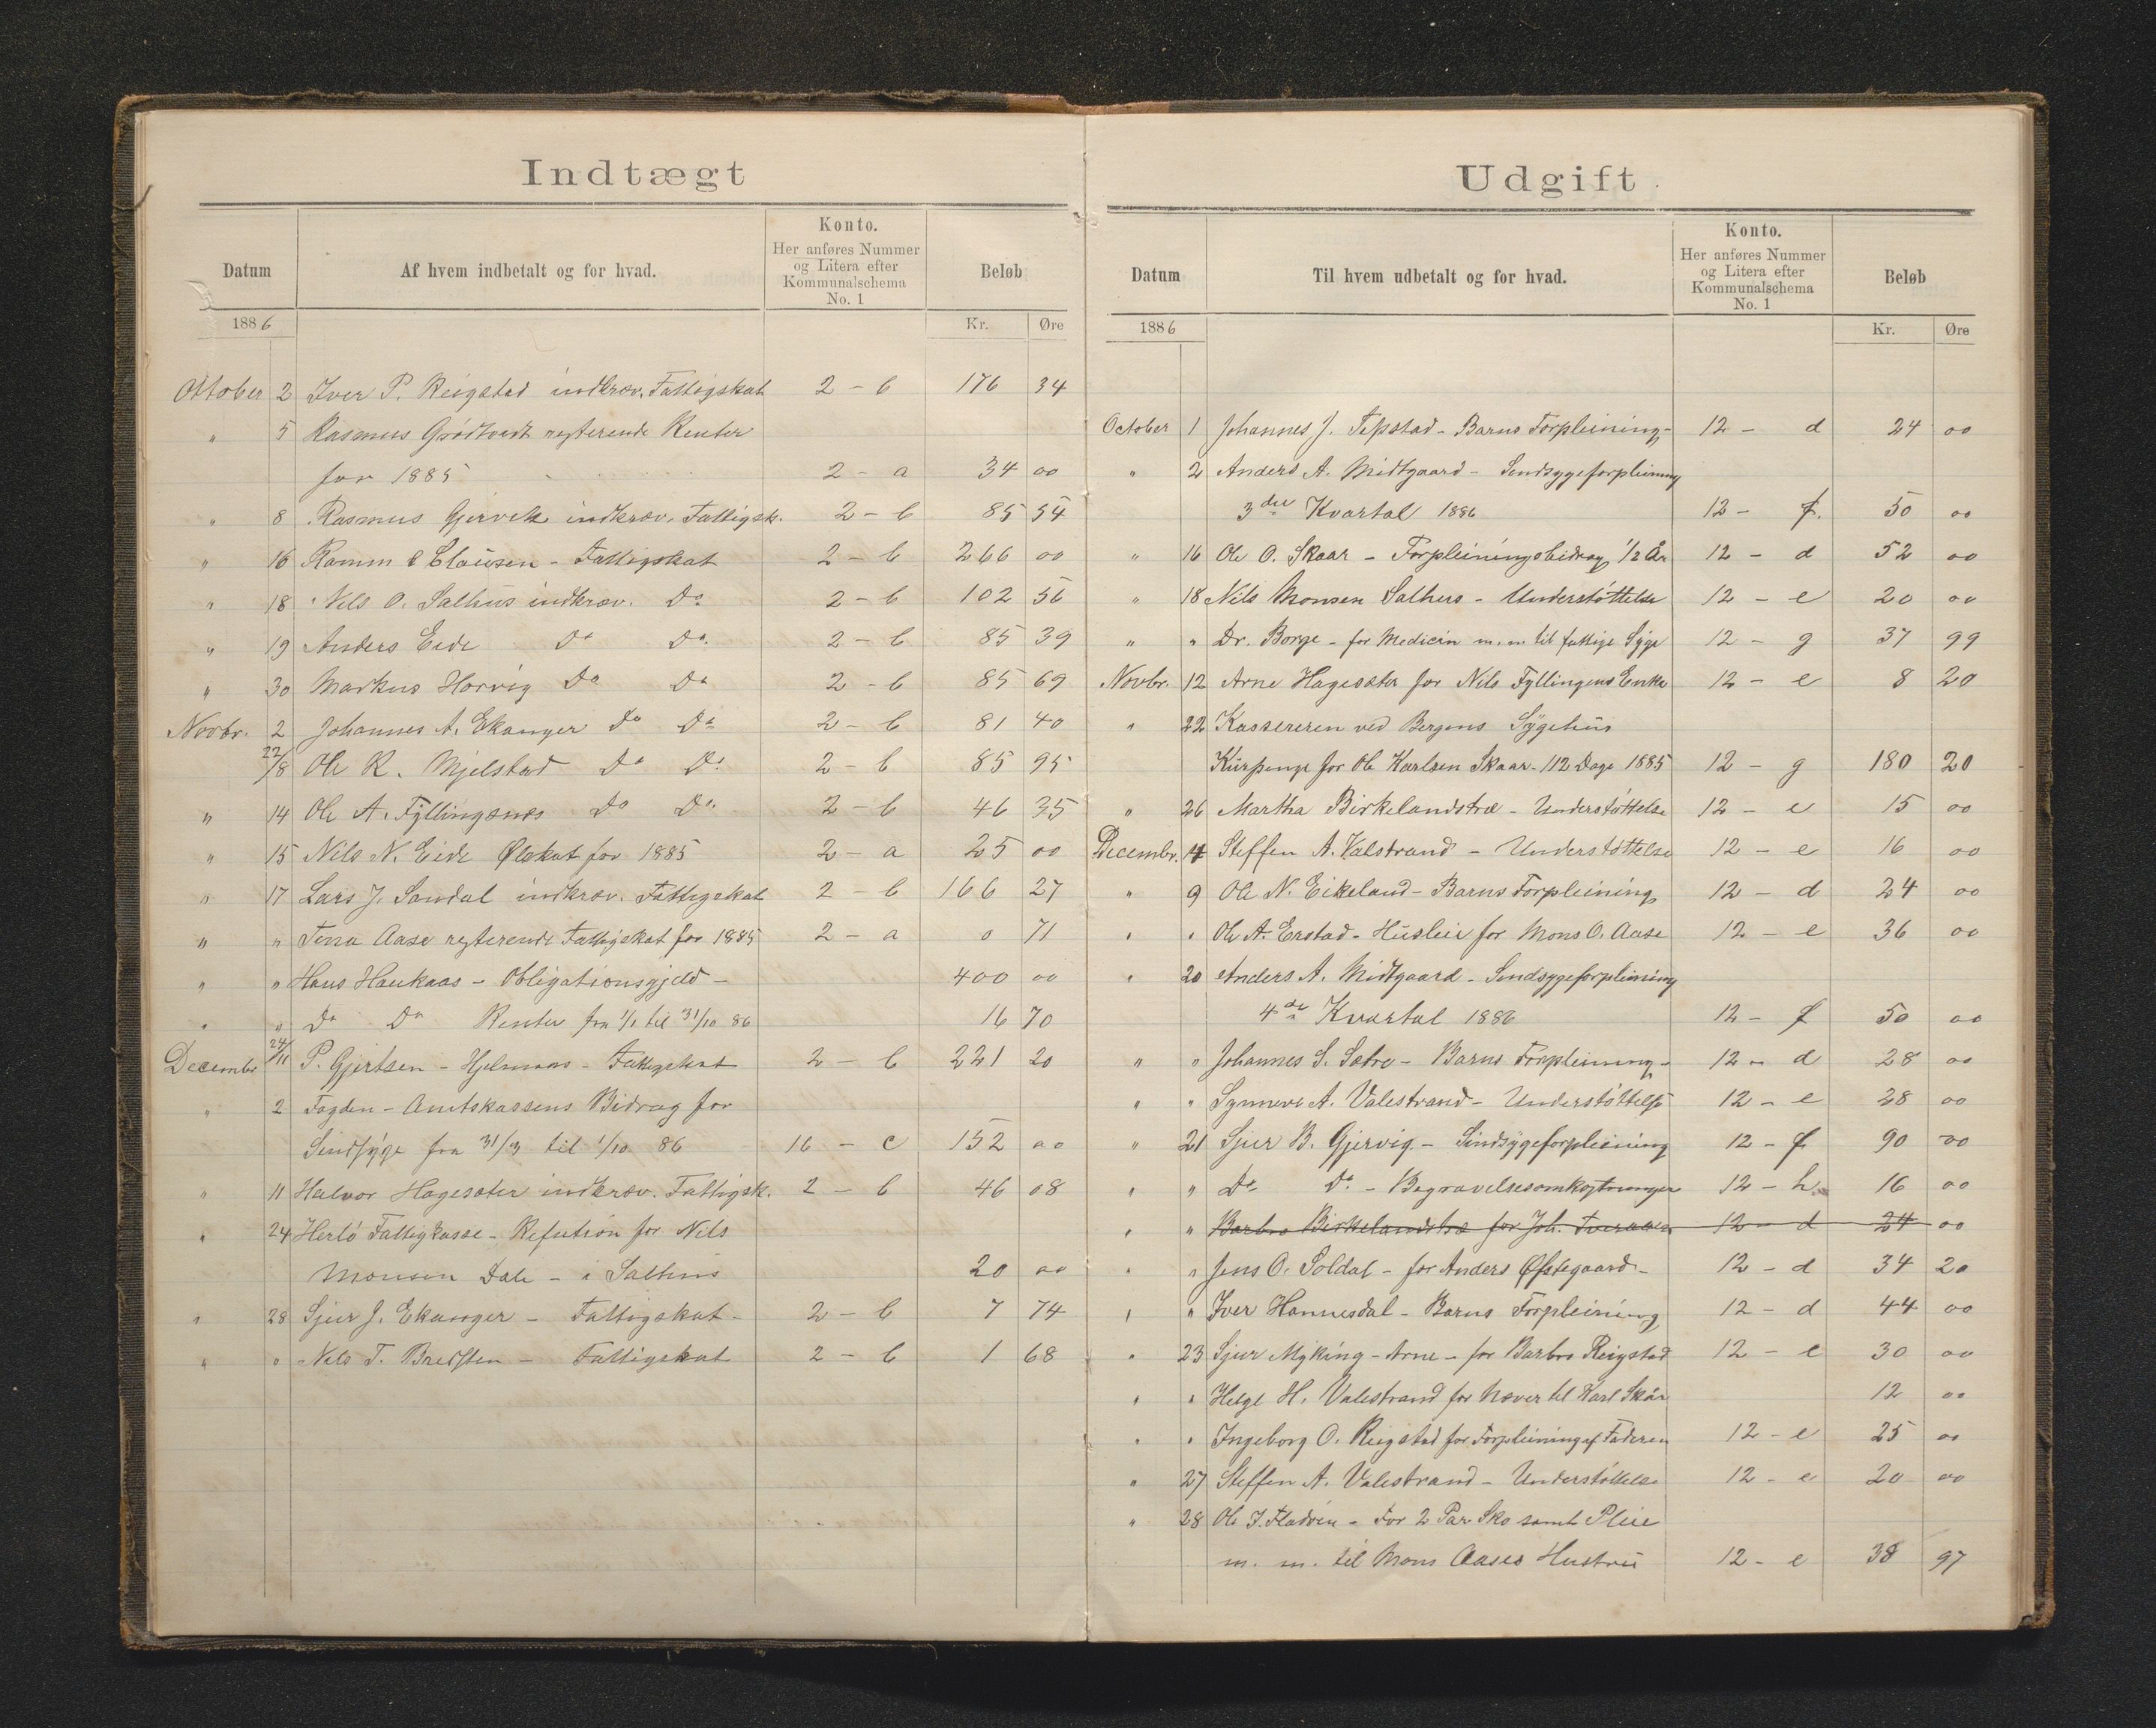 Indtægt
Datum | Af hvem indbetalt og for hvad. | Konto. Her anføres Nummer og Litera efter Kommunalschema No. 1 | Beløb
1886 | Kr. | Øre
October 2 Iver P. Reigstad indkræv. Fattigskat 2 - b 176 34
" 5 Rasmus Grødtvedt resterende Renter
for 1885 2 - a 34 00
" 8 Rasmus Gjervik indkræv. Fattigsk. 2 - b 85 54
" 16 Ramm & Clausen - Fattigskat 2 - b 266 00
" 18 Nils O. Salhus indkræv. Do 2 - b 102 56
" 19 Anders Eide Do Do 2 - b 85 39
" 30 Markus Horvig Do Do 2 - b 85 69
Novbr. 2 Johannes A. Ekanger Do Do 2 - b 81 40
22/8 Ole R. Mjelstad Do Do 2 - b 85 95
" 14 Ole A. Fyllingsnæs Do Do 2 - b 46 35
" 15 Nils N. Eide Ølskat for 1885 2 - a 25 00
" 17 Lars J. Sandal indkræv. Fattigskat 2 - b 166 27
" " Aase resterende Fattigskat for 1885 2 - a 0 71
" " Hans Haukaas - Obligationsgjeld - 400 00
" " Do Do Renter fra 1/1 til 31/10 86 16 70
Decembr 24/11 P. Gjertsen - Hjelmaas - Fattigskat 2 - b 221 20
" 2 Fogden - Amtskassens Bidrag for
Sindsyge fra 31/3 til 1/10 86 16 - c 152 00
" 11 Halvor Hagesæter indkræv. Fattigsk. 2 - b 46 08
" 24 Herlø Fattigkasse - Refution for Nils
Monsen Dale - i Salhus 20 00
" 28 Sjur J. Ekanger - Fattigskat - 2 - b 7 74
" " Nils T. Bredsten - Fattigskat 2 - b 1 68
Udgift.
Datum | Til hvem udbetalt og for hvad. | Konto. Her anføres Nummer og Litera efter Kommunalschema No. 1 | Beløb
1886 | Kr. | Øre
October 1 Johannes J. Tepstad - Barns Forpleining - 12 - d 24 00
" 2 Anders A. Midtgaard - Sindsygeforpleining
3die Kvartal 1886 12 - f. 50 00
" 16 Ole O. Skaar - Forpleiningsbidrag 1/2 År 12 - d 52 00
" 18 Nils Monsen Salhus - Understøttelse 12 - e 20 00
" " Dr. Borge - for Medicin m. m til fattige Syge 12 - g 37 99
Novbr. 12 Arne Hagesæter for Nils Fyllingens Enke 12 - e 8 20
" 22 Kassereren ved Bergens Sygehus
Kurpenge for Ole Karlsen Skaar - 112 Dage 1885 12 - g 180 20
" 26 Martha Birkelandstræ - Understøttelse 12 - e 15 00
Decembr. 4 Steffen A. Valstrand - Understøttelse 12 - e 16 00
" 9 Ole N. Eikeland - Barns Forpleining 12 - d 24 00
" " Ole A. Erstad - Husleie for Mons O. Aase 12 - e 36 00
" 20 Anders A. Midtgaard - Sindsygeforpleining
4de Kvartal 1886 12 - f 50 00
" " Johannes S. Sætre - Barns Forpleining - 12 - d 28 00
" " Synneve A. Valestrand - Understøttelse 12 - e 28 00
" 21 Sjur B. Gjervig - Sindsygeforpleining 12 - f 90 00
" " Do Do - Begravelsesomkostninger 12 - h 16 00
" " Barbro Birkelandstræ for Joh. Tveraaen 12 - d 24 00
" " Jens O. Soldal - for Anders Øfstegaard - 12 - d 34 20
" " Iver Hannesdal - Barns Forpleining 12 - d 44 00
" 23 Sjur Myking - Arne - for Barbro Reigstad 12 - e 30 00
" " Helge H. Valestrand for Næver til Karl Skår 12 00
" " Ingeborg O. Reigstad for Forpleining af Faderen 12 - e 25 00
" 27 Steffen A. Valestrand - Understøttelse 12 - e 20 00
" 28 Ole J. Fladøen - For 2 Par Sko samt Pleie
m. m. til Mons Aases Hustru 12 - e 38 97